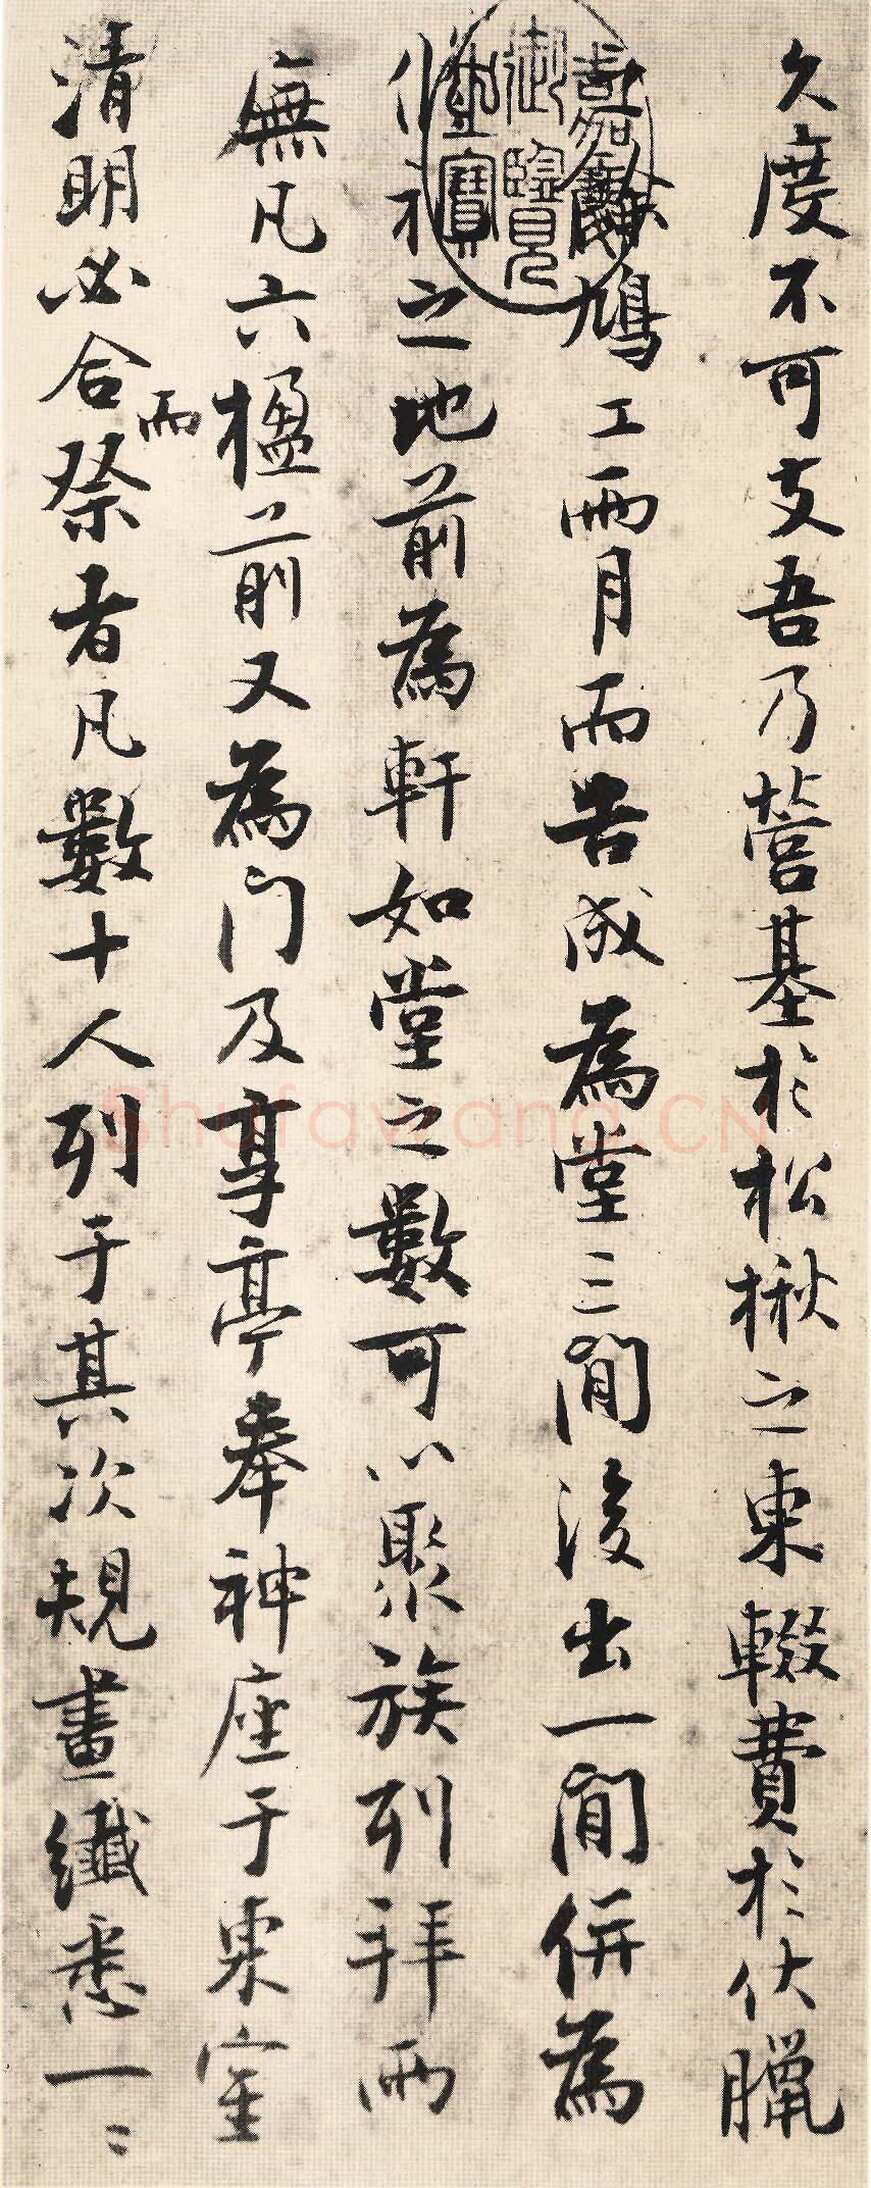 久度不可支吾乃營基於松楸之東輟費於伏臘
餘鳩工兩月而告成為堂三間後出一間併為
之地前為軒如堂之數可以聚族列拜兩
廡凡六楹前又為門及享亭奉神座于東室
清明必合而祭者凡數十人列于其次規畫纖悉一〻
嘉慶御覽之寶
Shufawang.CN